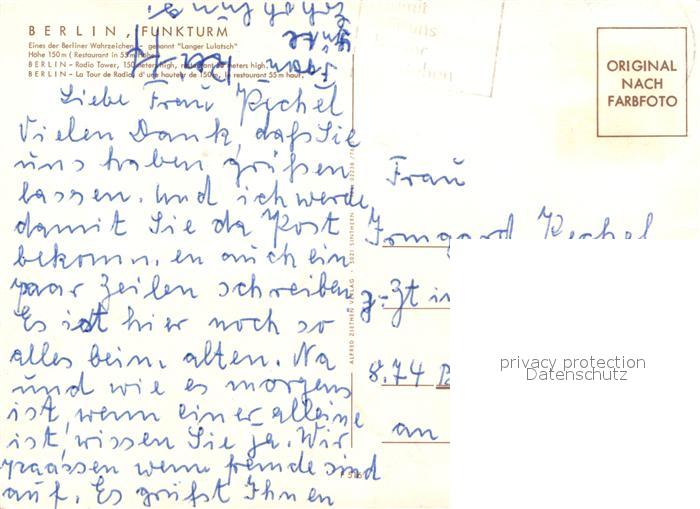 BERLIN, FUNKTURM
Eines der Berliner Wahrzeichen - genannt "Langer Lulatsch"
Höhe 150 m (Restaurant in 55 m Höhe)
BERLIN - Radio Tower, 150 meters high, restaurant 55 meters high.
BERLIN - La Tour de Radio, d'une hauteur de 150 m, le restaurant 55 m haut.
ORIGINAL
NACH
FARBFOTO
Liebe Frau Rechel
Vielen Dank, daſs Sie
uns haben grüßen
lassen. Und ich werde
damit Sie da Post
bekomm. en auch ein
paar Zeilen schreiben
Es ist hier noch so
alles beim alten. Na
und wie es morgens
ist, wenn einer alleine
ist, wissen Sie ja. Wir
paassen wenn fremde sind
auf. Es grüßt Ihnen
Frau
Irmgard Rechel
z-Zt in
8.74
an
ALFRED ZEETHEN VERLAG · 5021 SINTHERN
privacy protection
Datenschutz